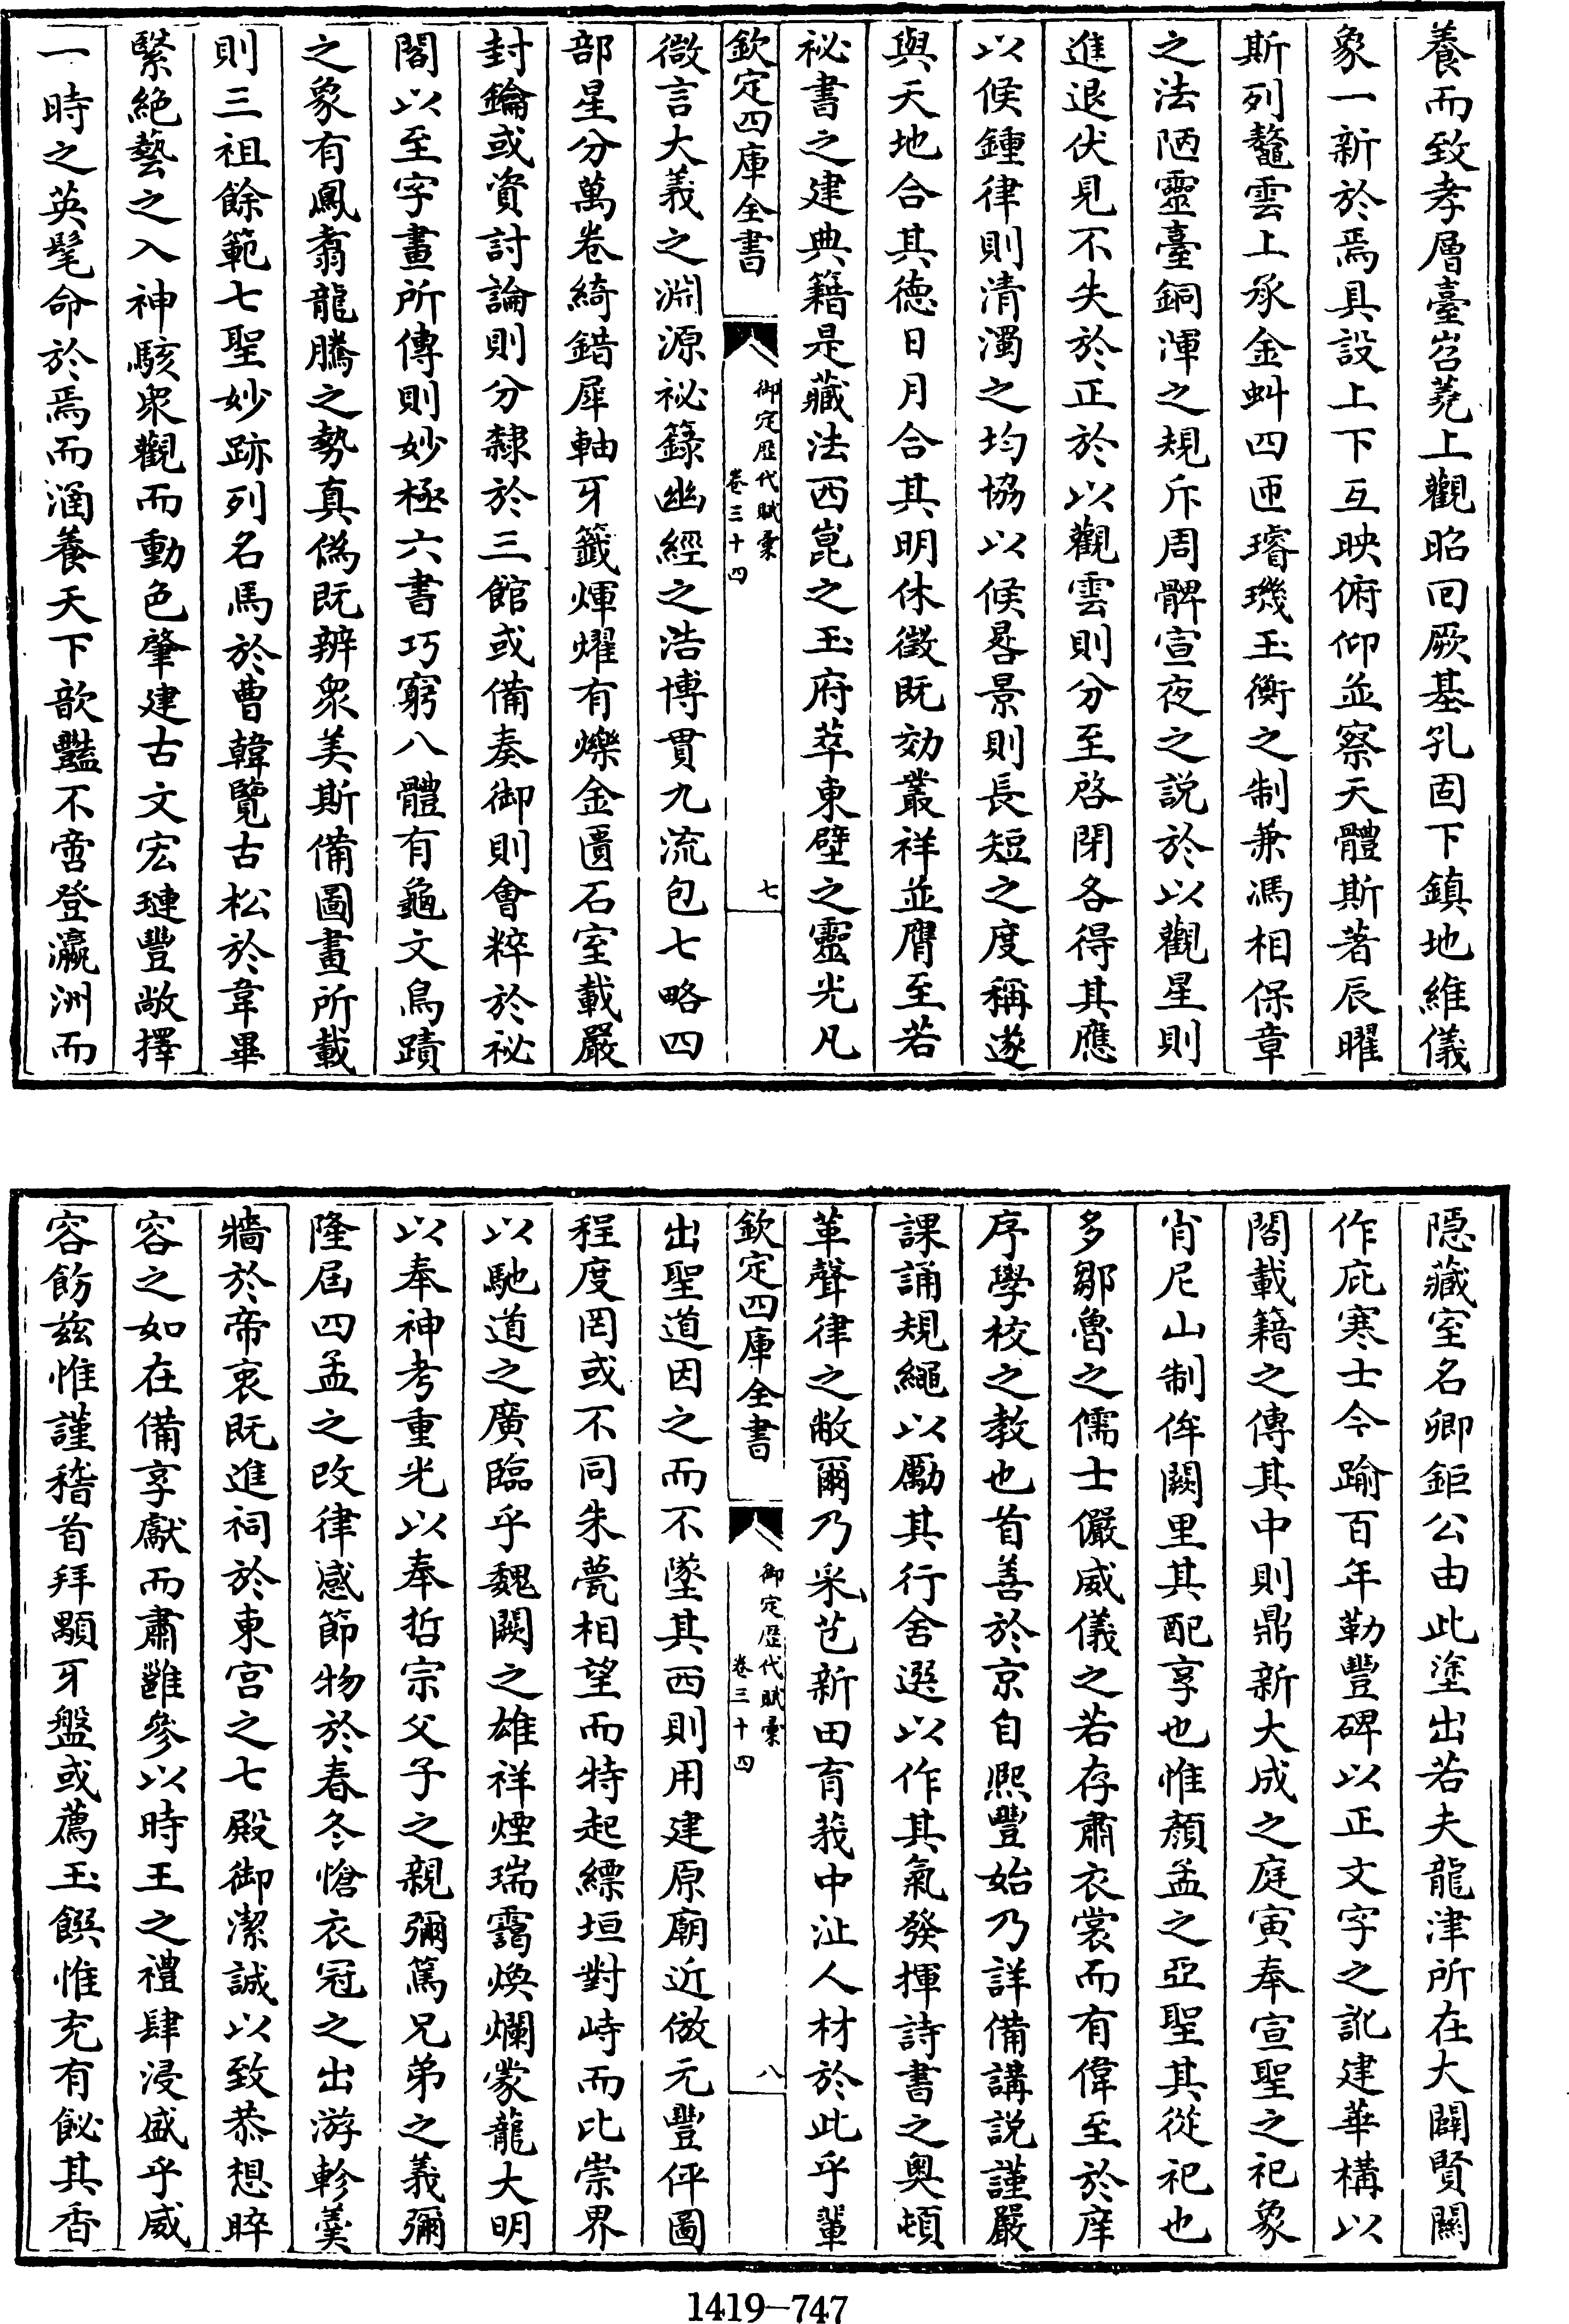 養而致孝層臺岧蕘上觀昭回厥基孔固下鎮地維儀
象一新於焉具設上下互映俯仰並察天體斯著辰曜
斯列鼇雲上承金虯四匝璿璣玉衡之制兼馮相保章
之法陋靈臺銅渾之規斥周髀宣夜之説於以觀星則
進退伏見不失於正於以觀雲則分至啓閉各得其應
以候鍾律則清濁之均協以候晷景則長短之度稱遂
與天地合其徳日月合其明休徵既効叢祥並膺至若
祕書之建典籍是藏法西崑之玉府萃東壁之靈光凡
欽定四庫全書
御定歴代賦彚
卷三十四
七
微言大義之淵源祕籙幽經之浩博貫九流包七略四
部星分萬卷綺錯犀軸牙籤煇燿有爍金匱石室載嚴
封鑰或資討論則分隸於三館或備奏御則會粹於祕
閣以至字畫所傳則妙極六書巧窮八體有龜文鳥蹟
之象有鳳翥龍騰之勢真偽既辨衆美斯備圖畫所載
則三祖餘範七聖妙跡列名馬於曹韓覽古松於韋畢
緊絶藝之入神駭衆觀而動色肇建古文宏璉豐敞擇
一時之英髦命於焉而涵養天下歆豔不啻登瀛洲而
隠藏室名卿鉅公由此塗出若夫龍津所在大闢賢關
作庇寒士今踰百年勒豐碑以正文字之訛建華構以
閣載籍之傳其中則鼎新大成之庭寅奉宣聖之祀象
肖尼山制侔闕里其配享也惟顔孟之亞聖其從祀也
多鄒魯之儒士儼威儀之若存肅衣裳而有偉至於庠
序學校之教也首善於京自熙豐始乃詳備講説謹嚴
課誦規繩以勵其行舍選以作其氣發揮詩書之奥頓
革聲律之敝爾乃采芑新田育莪中沚人材於此乎輩
欽定四庫全書
御定歴代賦彚
卷三十四
八
出聖道因之而不墜其西則用建原廟近倣元豐伻圖
程度罔或不同朱甍相望而特起縹垣對峙而比崇界
以馳道之廣臨乎魏闕之雄祥煙瑞靄煥爛蒙龍大明
以奉神考重光以奉哲宗父子之親彌篤兄弟之義彌
隆屆四孟之改律感節物於春冬愴衣冠之出游軫羮
牆於帝衷既進祠於東宫之七殿御潔誠以致恭想睟
容之如在備享獻而肅雝參以時王之禮肆浸盛乎威
容飭兹惟謹稽首拜顒牙盤或薦玉饌惟充有飶其香
1419—747